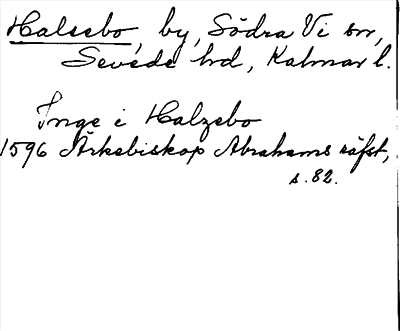 Halsebo, by, Södra Vi sn,
Sevede hd, Kalmar l.
Inge i Halzebo
1596 Ärkebiskop Abrahams räfst,
s. 82.